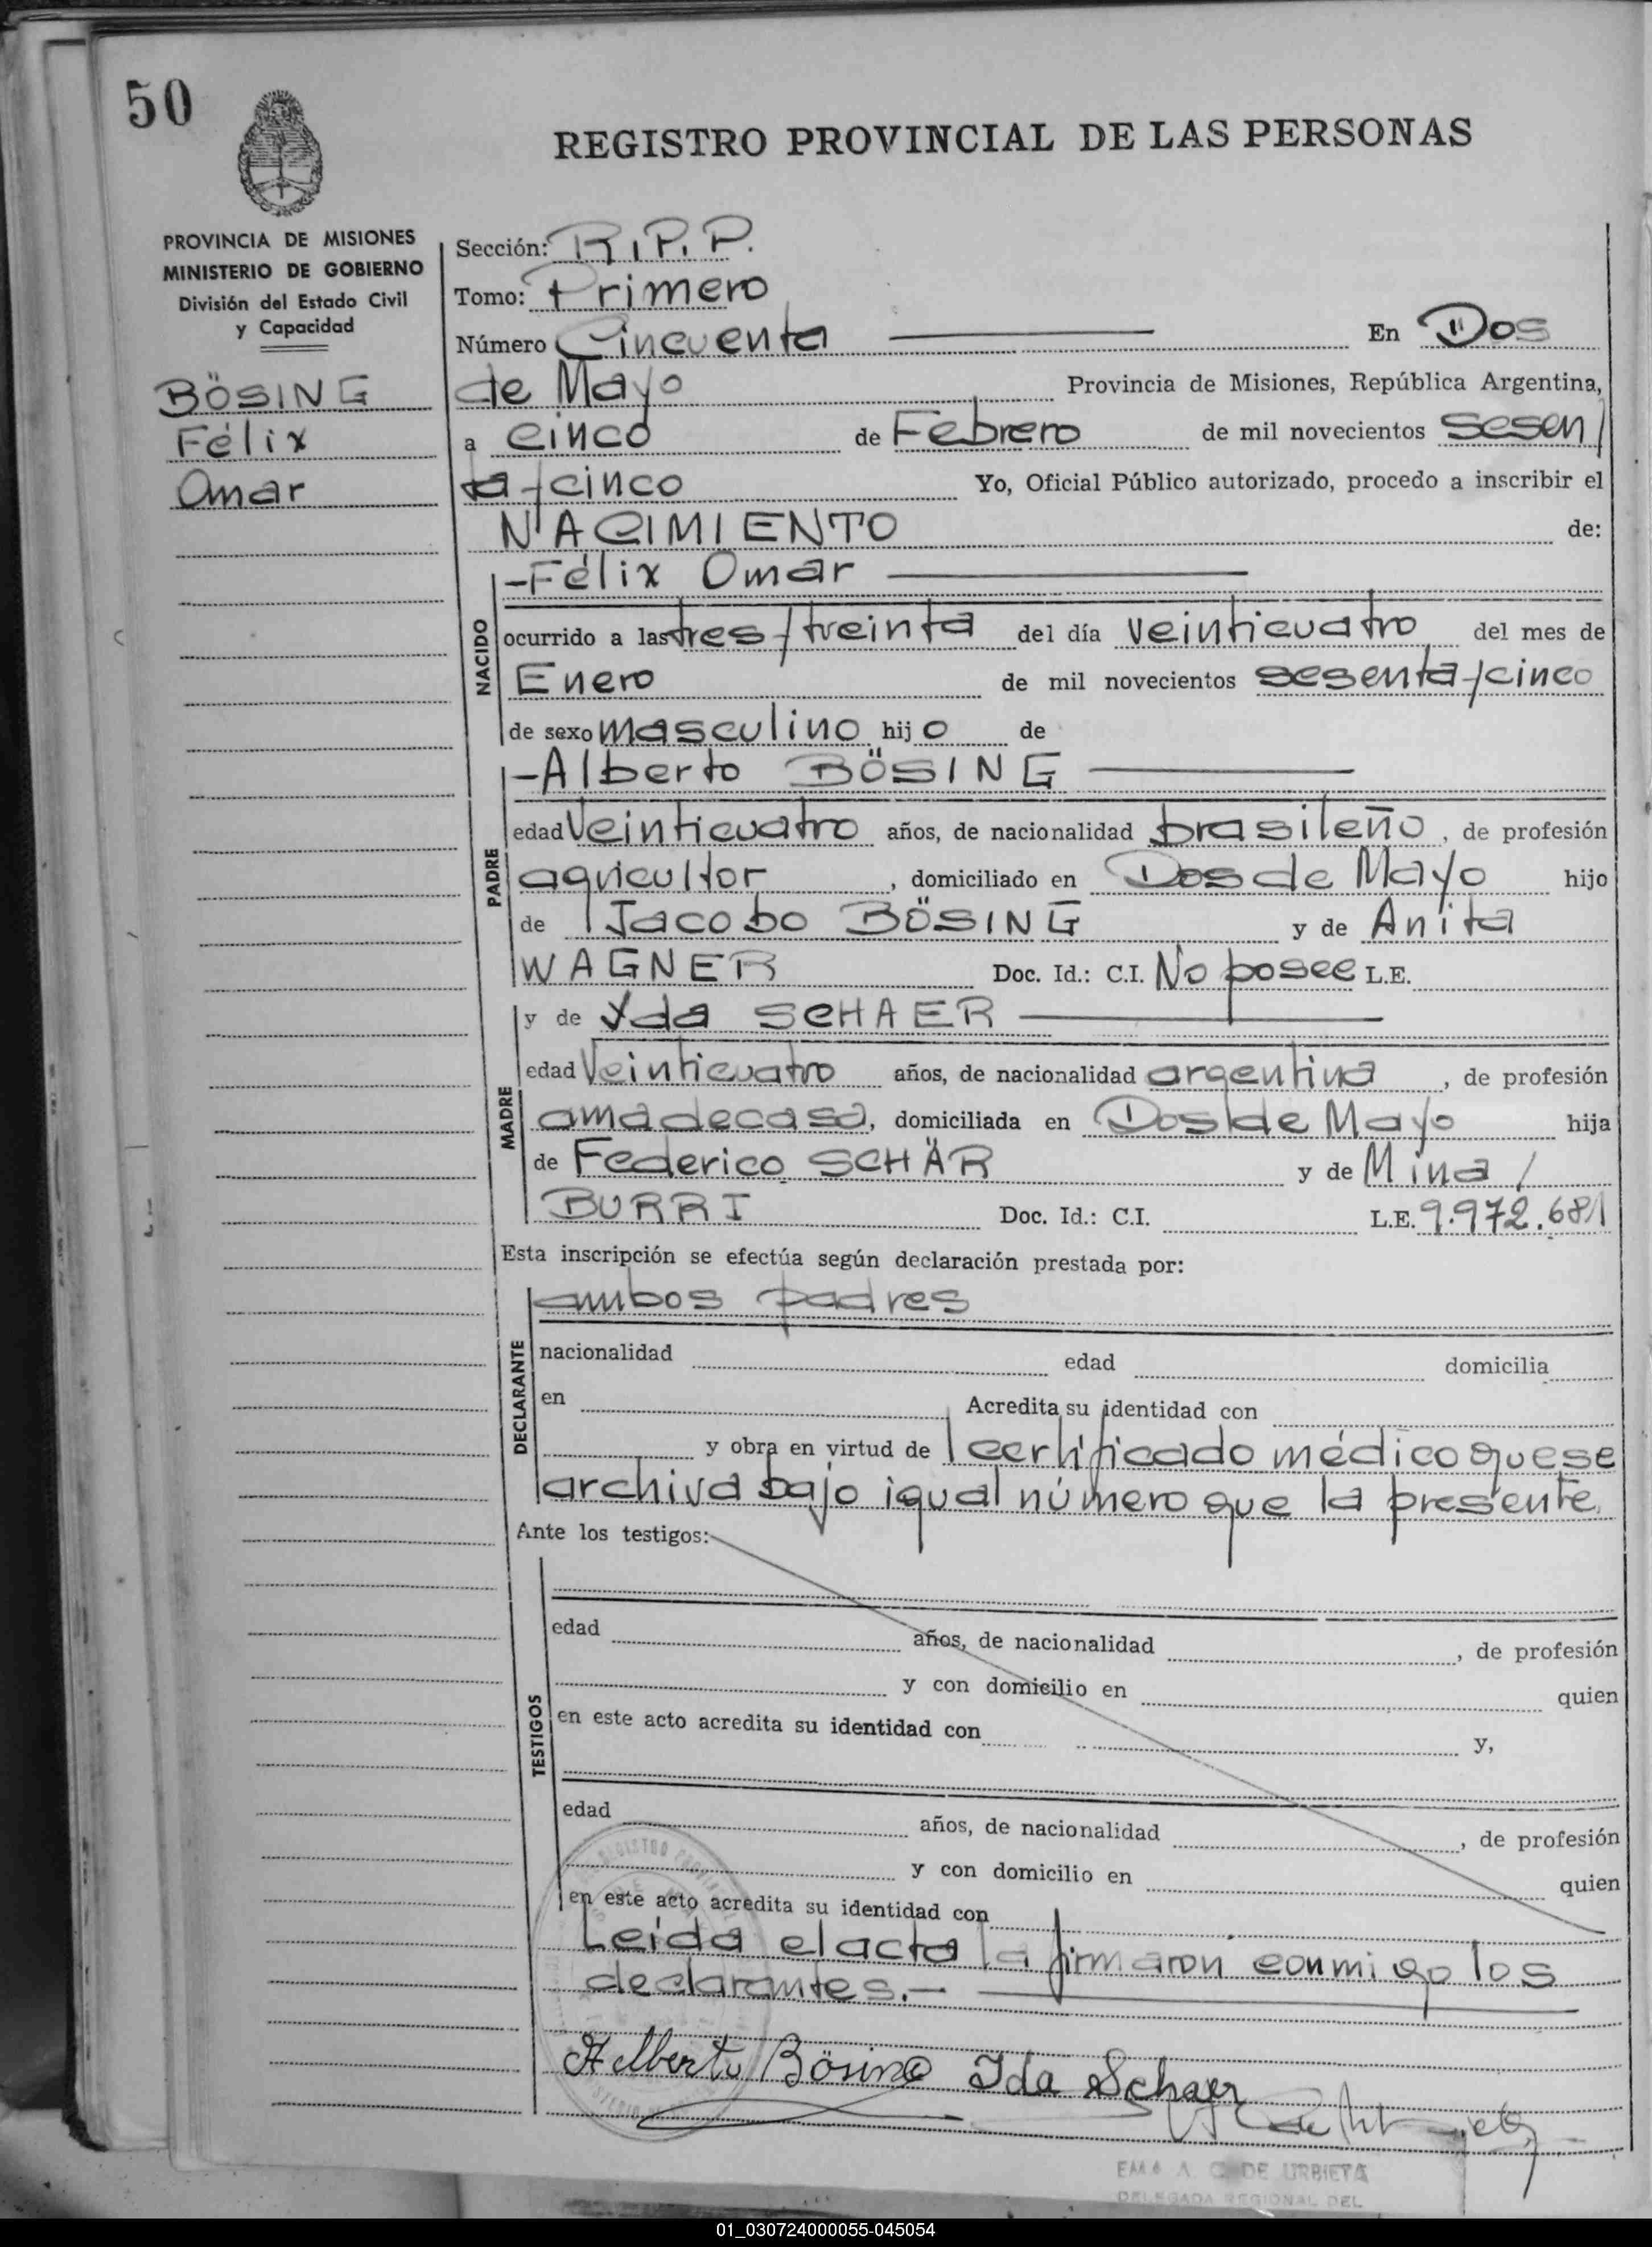 50
REGISTRO PROVINCIAL DE LAS PERSONAS
PROVINCIA DE MISIONES
MINISTERIO DE GOBIERNO
División del Estado Civil
y Capacidad
BÖSING
Félix
Omar
Sección: R.P.P.
Tomo: Primero
Número Cincuenta En Dos
de Mayo Provincia de Misiones, República Argentina,
a cinco de Febrero de mil novecientos sesen/
ta y cinco Yo, Oficial Público autorizado, procedo a inscribir el
NACIMIENTO de:
NACIDO
-Félix Omar
ocurrido a las tres y treinta del día veinticuatro del mes de
Enero de mil novecientos sesenta y cinco
de sexo masculino hijo de
PADRE
-Alberto BÖSING
edad veinticuatro años, de nacionalidad brasileño, de profesión
agricultor, domiciliado en Dos de Mayo hijo
de Jacobo BÖSING y de Anita
WAGNER Doc. Id.: C.I. No posee L.E.
MADRE
y de Yda SCHAER
edad veinticuatro años, de nacionalidad argentina, de profesión
ama de casa, domiciliada en Dos de Mayo hija
de Federico SCHÄR y de Mina /
BURRI Doc. Id.: C.I. L.E. 9.972.681
Esta inscripción se efectúa según declaración prestada por:
DECLARANTE
ambos padres
nacionalidad edad domicilia
en Acredita su identidad con
y obra en virtud de certificado médico que se
archiva bajo igual número que la presente.
Ante los testigos:
TESTIGOS
edad años, de nacionalidad , de profesión
y con domicilio en quien
en este acto acredita su identidad con y,
edad años, de nacionalidad , de profesión
y con domicilio en quien
en este acto acredita su identidad con
Leída el acta la firmaron conmigo los
declarantes.-
Alberto Bösing Ida Schaer
DE URBIETA
DELEGADA REGIONAL DEL
01_030724000055-045054